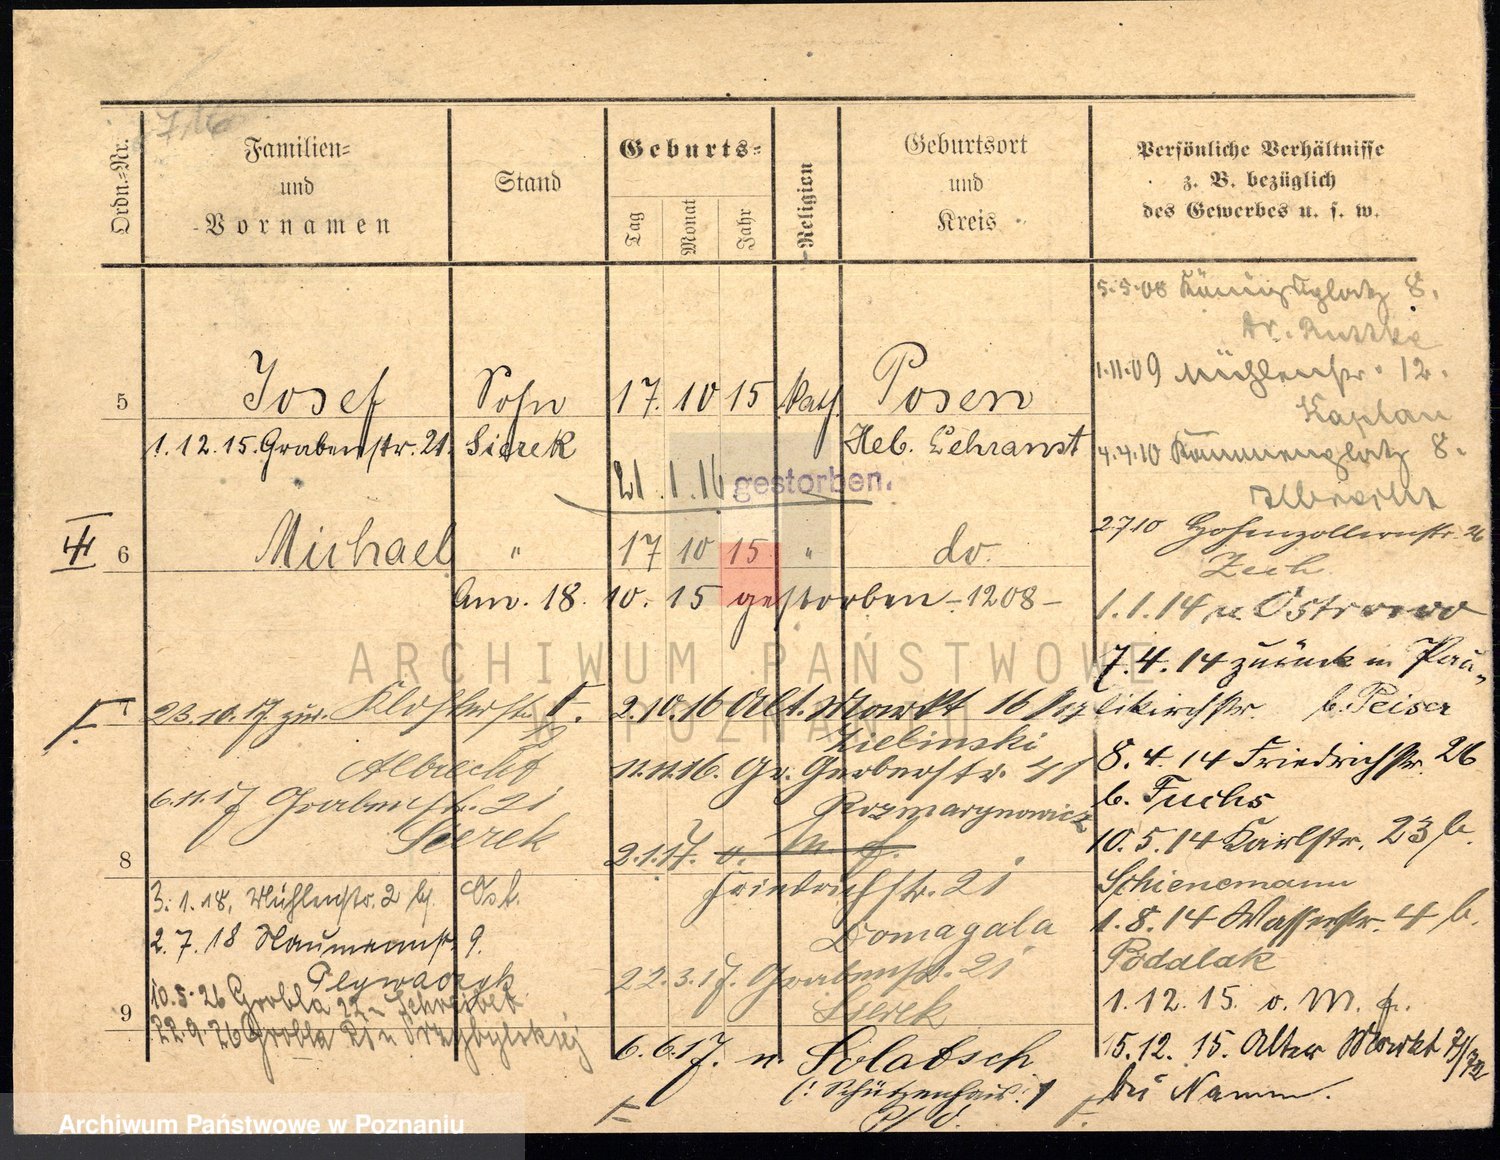 716
Ordn.-Nr.
Familien-
und
Vornamen
Stand
Geburts-
Tag
Monat
Jahr
Religion
Geburtsort
und
Kreis
Persönliche Verhältnisse
z. B. bezüglich
des Gewerbes u. s. w.
5 Josef Sohn 17. 10 15 Kath. Posen
1.12.15. Grabenstr. 21. Sierek Heb. Lehranst
21.1.16 gestorben.
6 Michael " 17 10 15 " do.
Am. 18. 10. 15 gestorben -1208-
7
23.10.17 zur. Klosterstr.
Albrecht
6.11.17 Grabenstr. 21
Sierek
8
3.1.18. Mühlenstr. 2 Ost.
2.7.18 Naumannstr. 9.
Plywaczyk
10.5.26 Grobla 22 -
9
22.9.26 Grobla
2.10.16 Alt. Markt 16
Zielinski
11.11.16. Gr. Gerberstr. 41
Rozmarynowicz
2.1.17. v. M. f.
Friedrichstr. 21
Domagala
22.3.17. Grabenstr. 21
Sierek
6.6.17. n. Solatsch
(: Schützenhaus :)
5.5.08 Königsplatz 8.
Dr.
1.11.09 Mühlenstr. 12.
Kaplan
4.4.10 8.
2710 Hohenzollernstr. 26
Zech
1.1.14 n. Ostrowo
7.4.14 zurück n Pau-
likirchstr. b. Peiser
8.4.14 Friedrichstr. 26
b. Fuchs
10.5.14 Karlstr. 23 b.
Schienemann
1.8.14 Wasserstr. 4 b.
Podalak
1.12.15 v. M. f.
15.12.15. Alter Markt 71/72
bei Namm.
ARCHIWUM PAŃSTWOWE
W POZNANIU
Archiwum Państwowe w Poznaniu